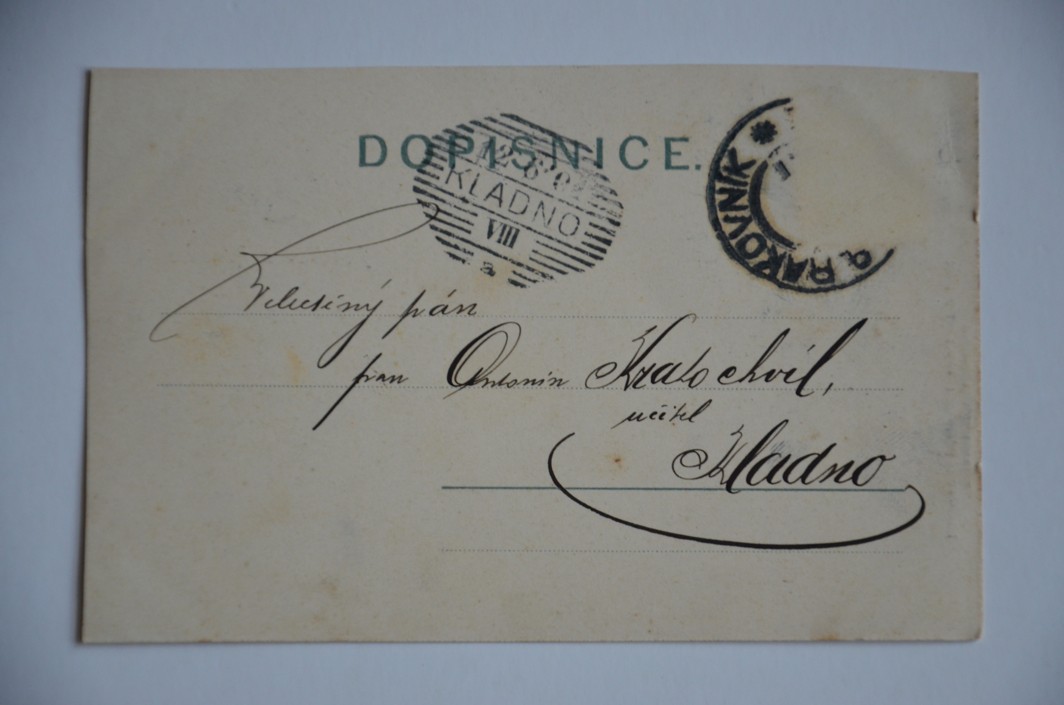 DOPISNICE.
KLADNO
VIII
a
RAKOVNÍK
Velectěný pán
pan Antonín Kratochvíl,
učitel
Kladno